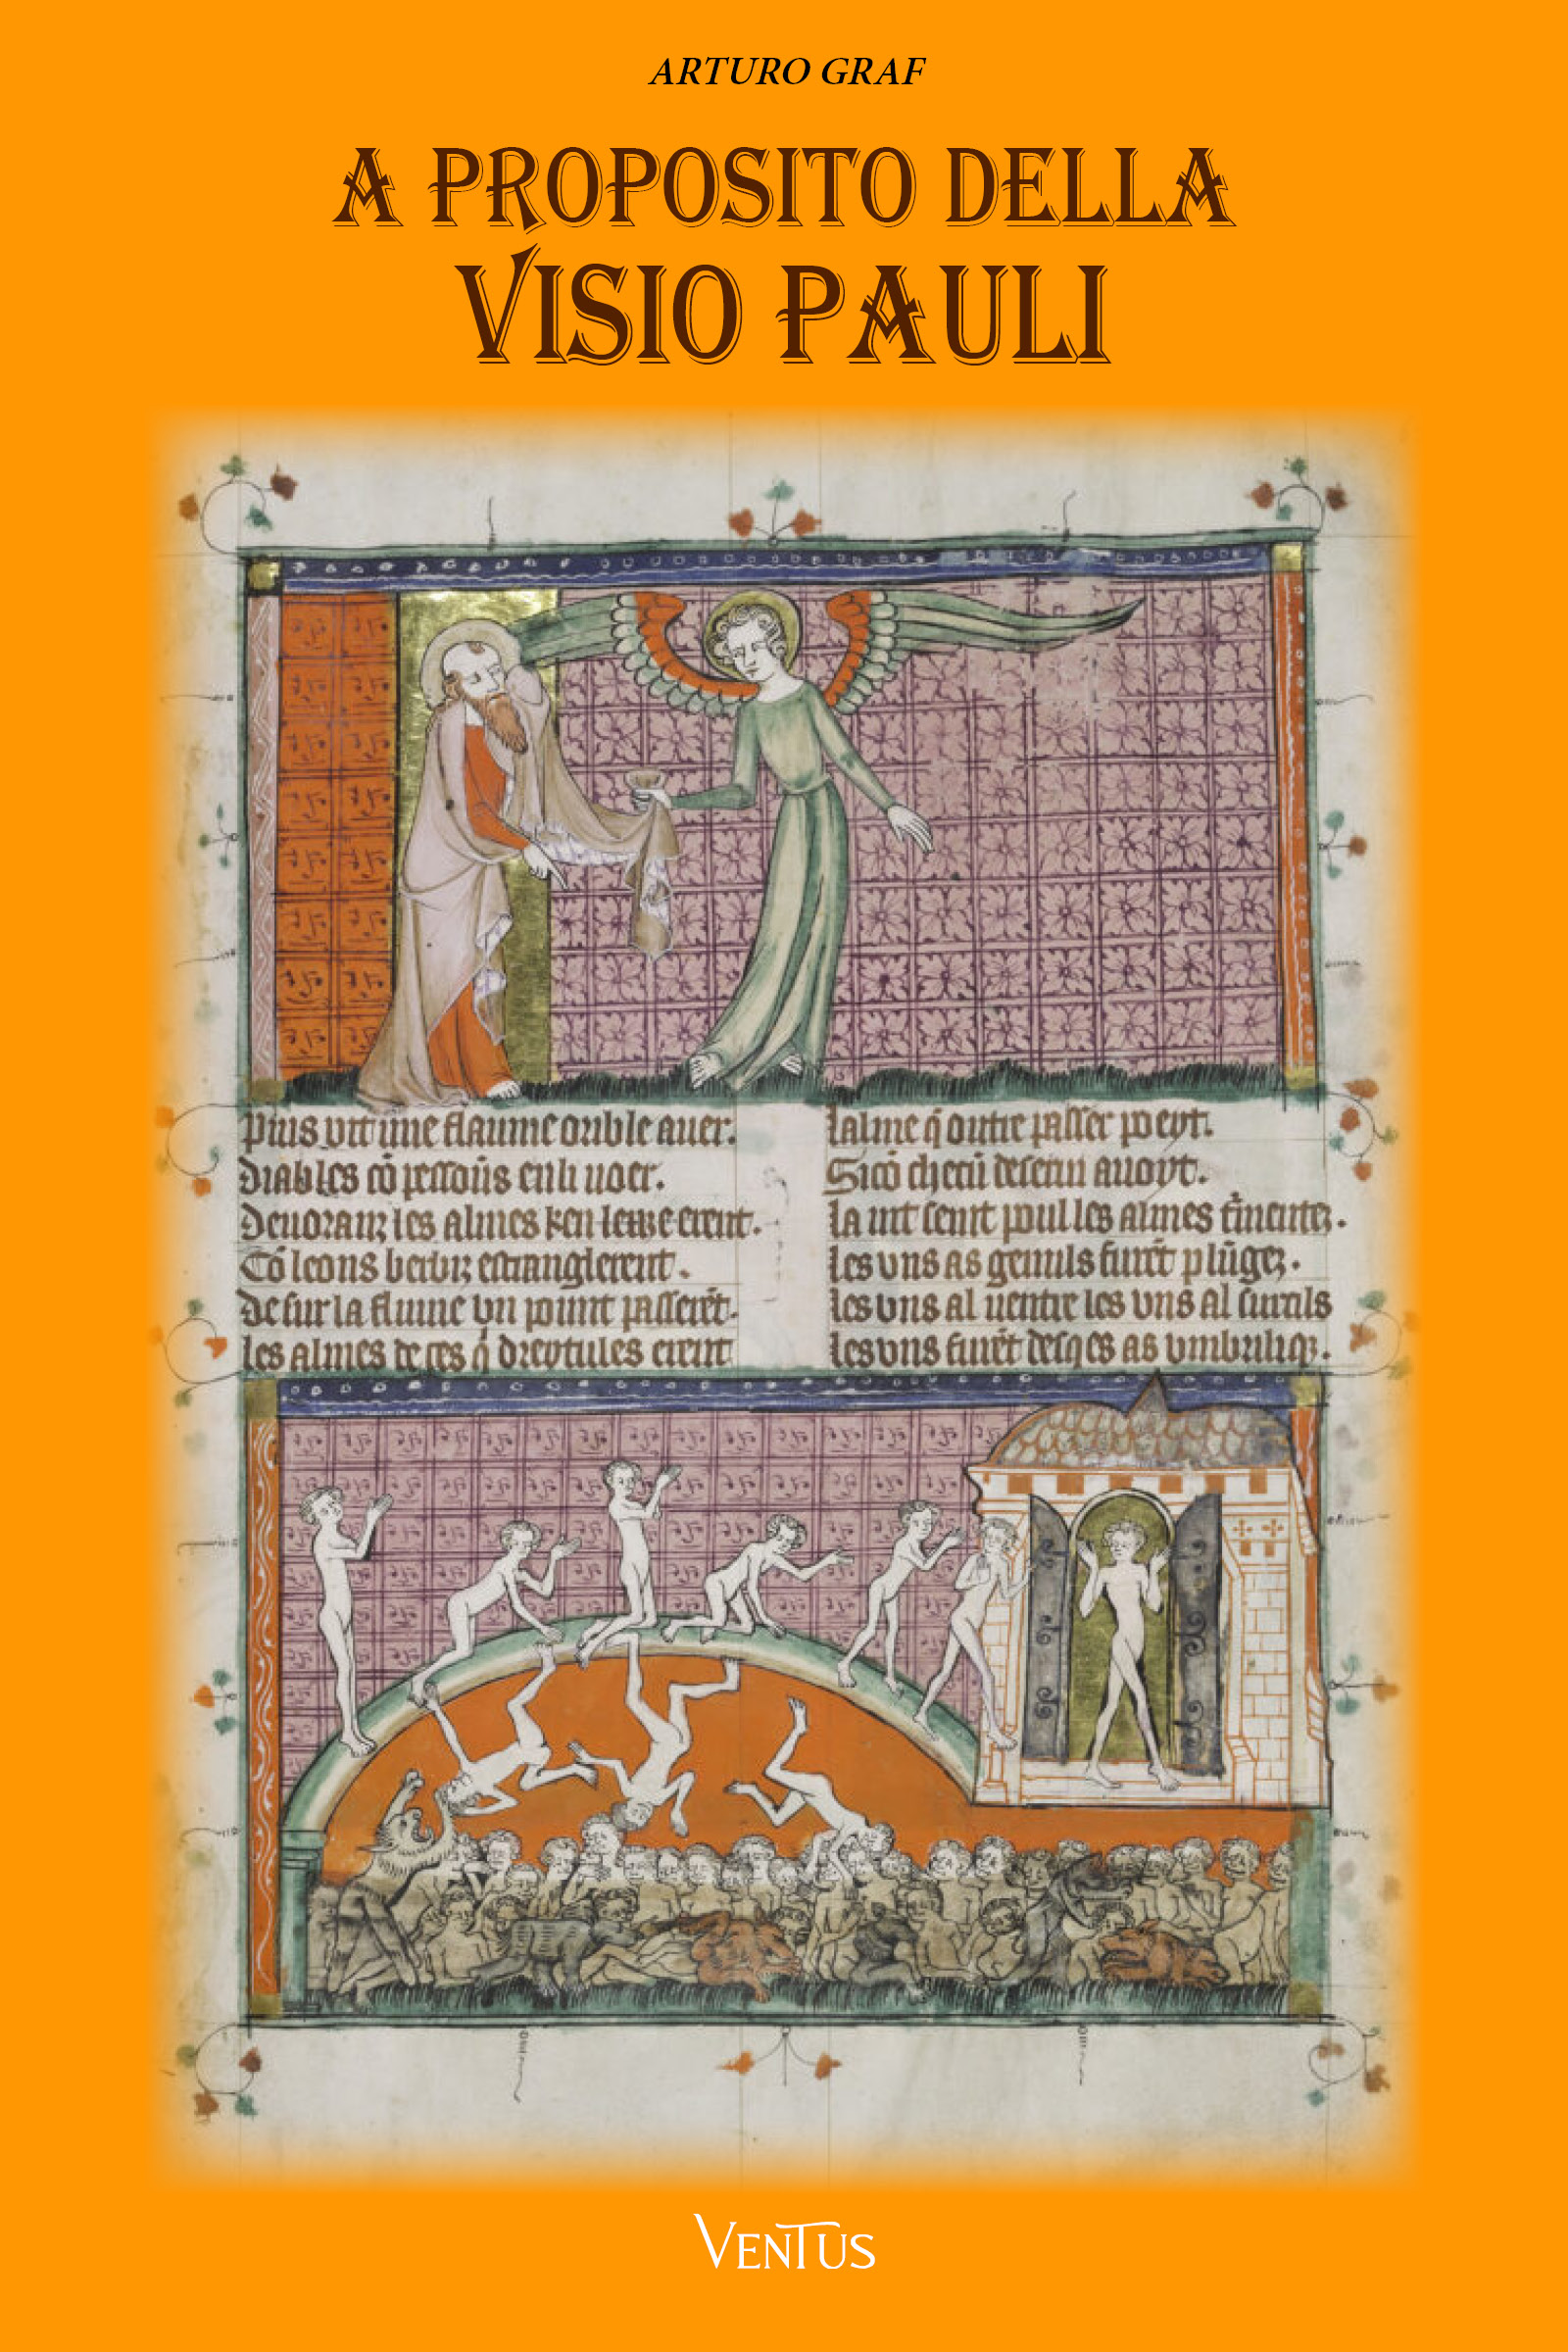 ARTURO GRAF
A PROPOSITO DELLA
VISIO PAULI
Puis vit une flaume orible auer.
diables cō pessoūs en li noer.
Deuoranz les almes ken lewe erent.
Cō leons estranglerent.
de sur la flume vn pount passerēt.
les almes de ces q̇ erent
lalme q̄ outre passer poeyt.
Sicō auoyt.
la uit seint poul les almes
les vns as genuils furēt plūgez.
les vns al uentre les vns al surcils
les vns furēt desqes as
VENTUS